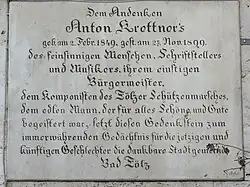 Dem Andenken
Anton Krottner's
geb. am 2. Febr. 1849, gest. am 23. Nov. 1899,
des feinsinnigen Menschen, Schriftstellers
und Musikers, ihrem einstigen
Bürgermeister,
dem Komponisten des Tölzer Schützenmarsches,
dem edlen Mann, der für alles Schöne und Gute
begeistert war, setzt diesen Gedenkstein zum
immerwährenden Gedächtnis für die jetzigen und
künftigen Geschlechter die dankbare Stadtgemeinde
Bad Tölz